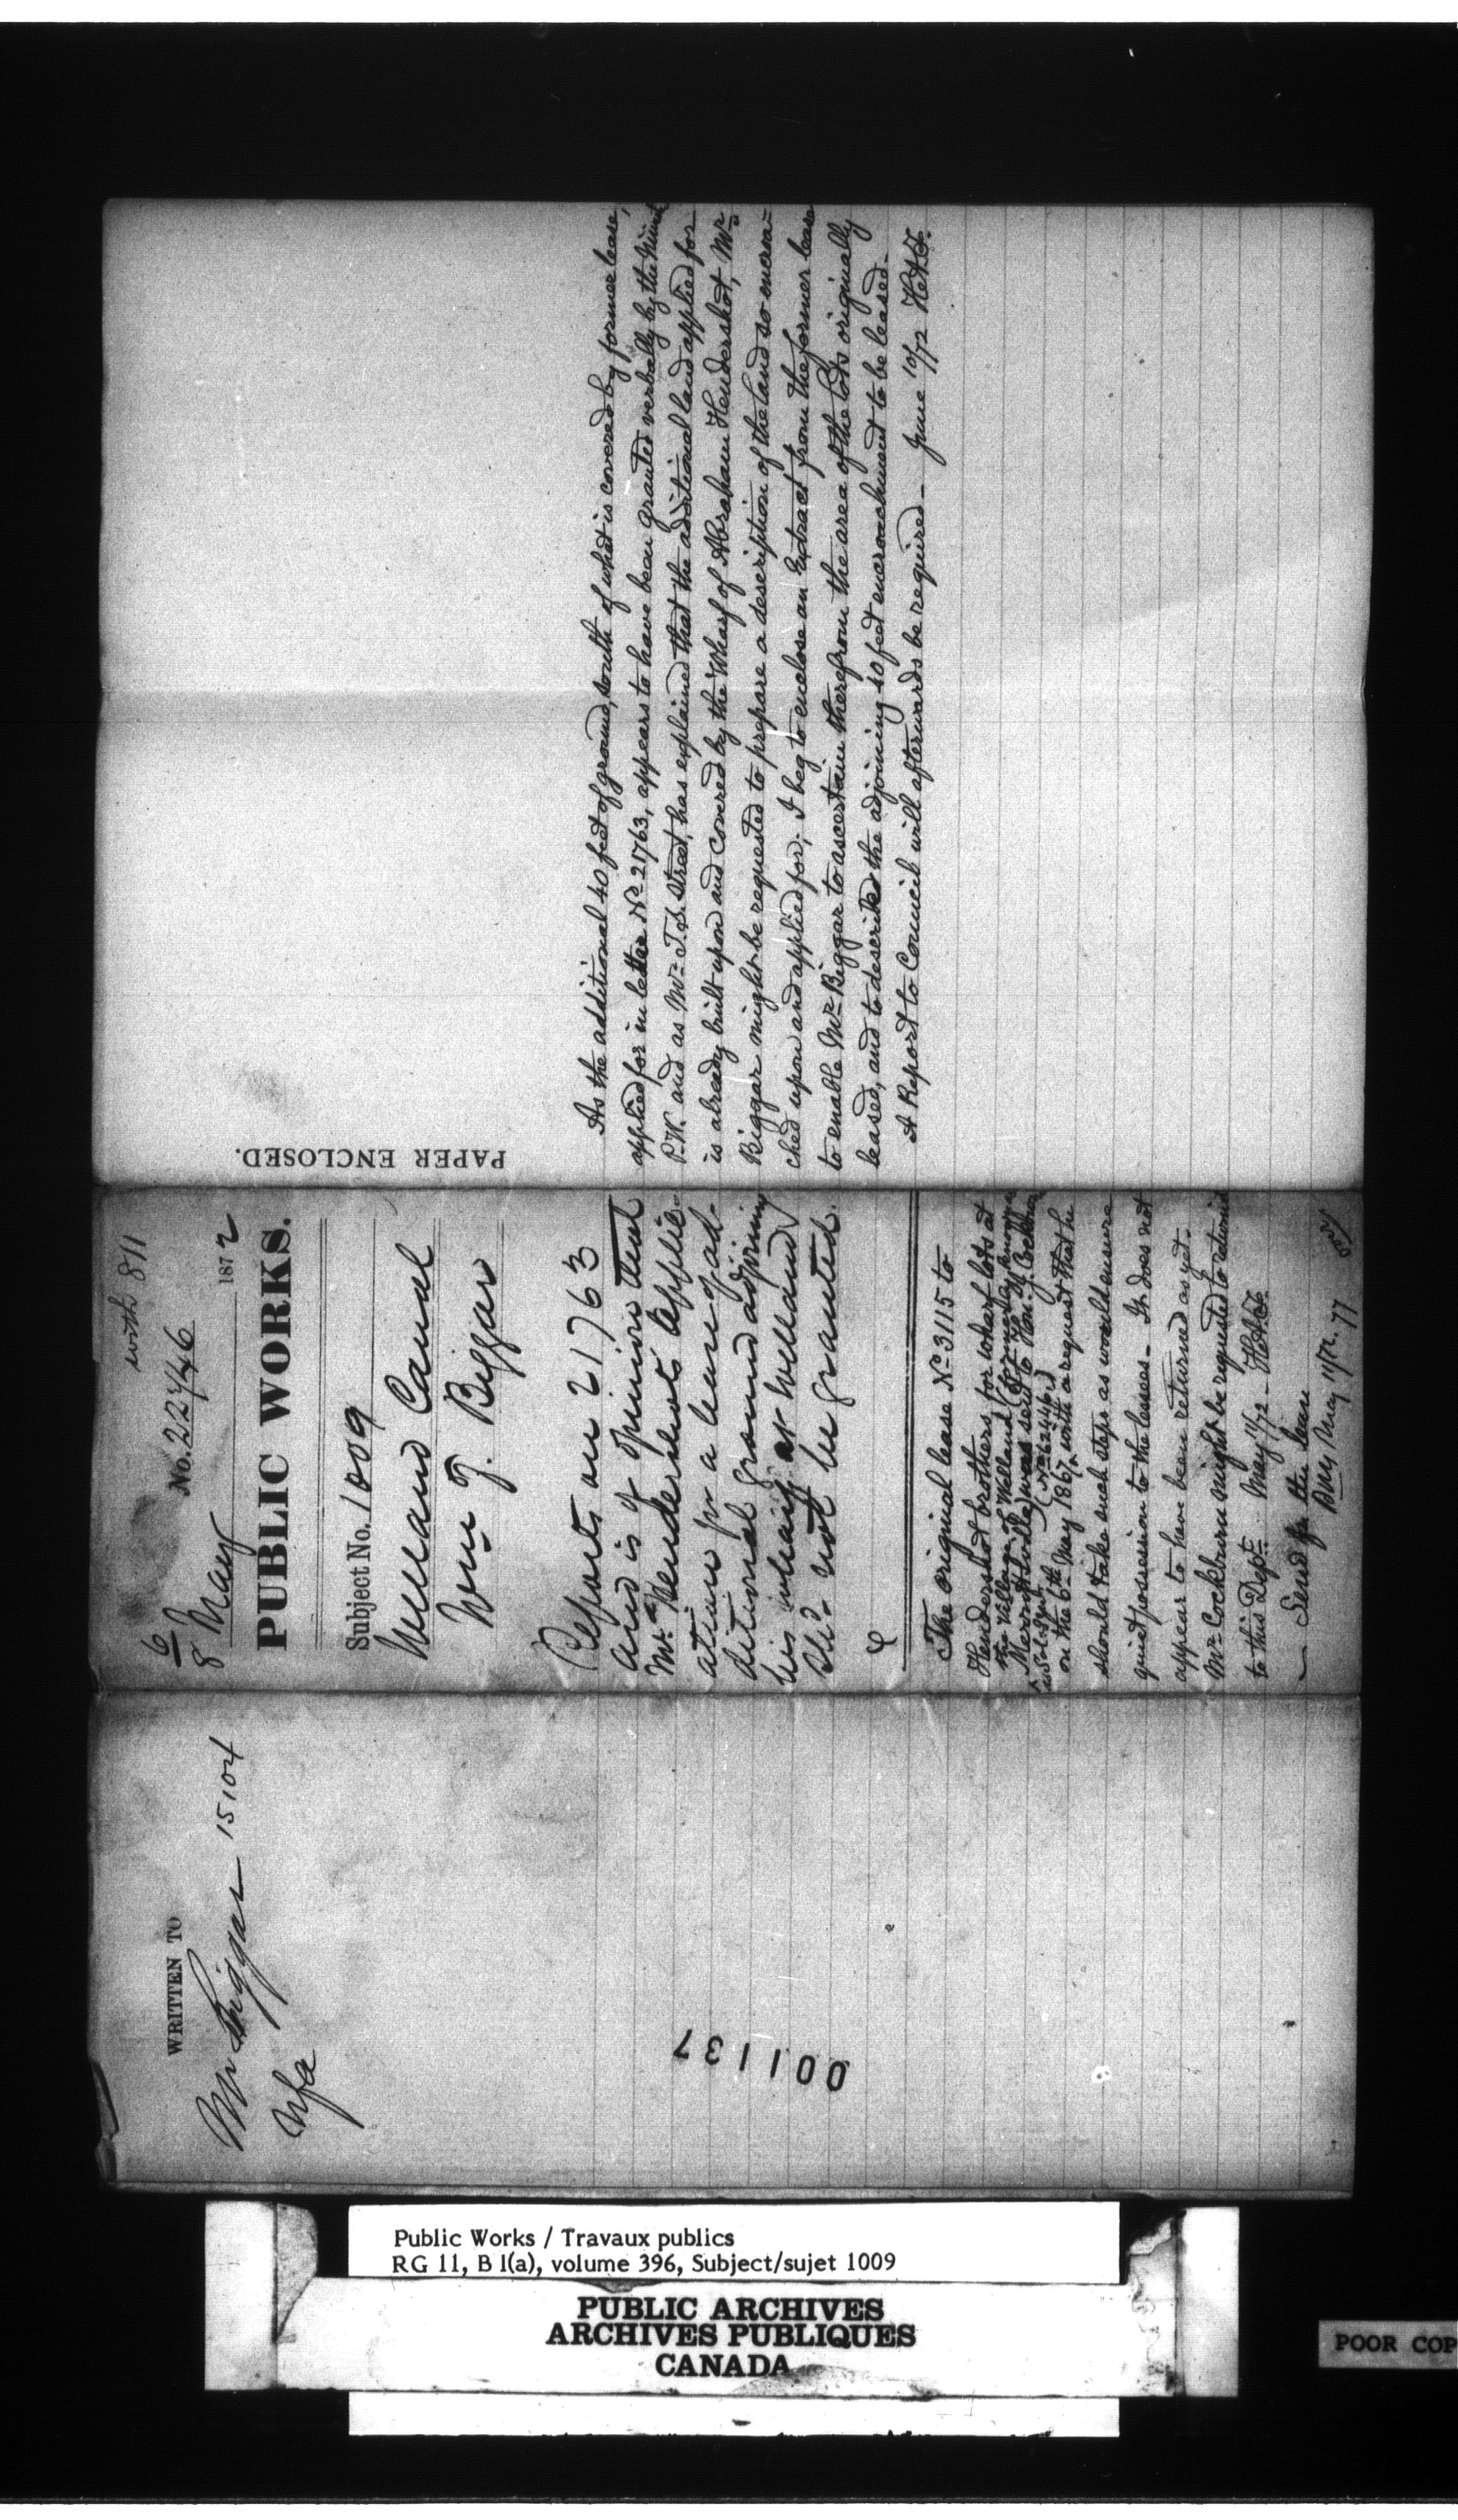 WRITTEN TO
Mr Biggar 15104
Nfa
001137
with 811
6/8 May No. 22746 1872
PUBLIC WORKS.
Subject No. 1009
Welland Canal
Wm Z. Biggar
Reports on 21763
and is of opinion that
Mr. Hendershots applic-
ation for a lease of ad-
ditional ground adjoining
his wharf at Welland
shd. not be granted.
The original lease No 3115 to
Hendershot brothers, for wharf lots at
the Village of Welland (formerly known as
Merrittsville) was sent to Hon. J. Cockburn
(No 62446)
on the 6th May 1867, with a request that he
should take such steps as would ensure
quiet possession to the lessees. It does not
appear to have been returned as yet.
Mr Cockburn might be requested to return it
to this Dept. May 11/72 - H.A.F.
Send for the lease
May 11/72. 77
PAPER ENCLOSED.
As the additional 40 feet of ground, south of what is covered by former lease,
applied for in letter No 21763, appears to have been granted verbally by the Minist
P.W. and as Mr T.S. Street, has explained that the additional land applied for
is already built upon and covered by the Wharf of Abraham Hendershot, Mr
Biggar might be requested to prepare a description of the land so encroa-
ched upon and applied for; I beg to enclose an Extract from the former lease
to enable Mr Biggar to ascertain therefrom the area of the lots originally
leased, and to describe the adjoining 40 feet encroachment to be leased.
A Report to Council will afterwards be required - June 10/72 H.A.F.
Public Works / Travaux publics
RG 11, B 1(a), volume 396, Subject/sujet 1009
PUBLIC ARCHIVES
ARCHIVES PUBLIQUES
CANADA
POOR COP